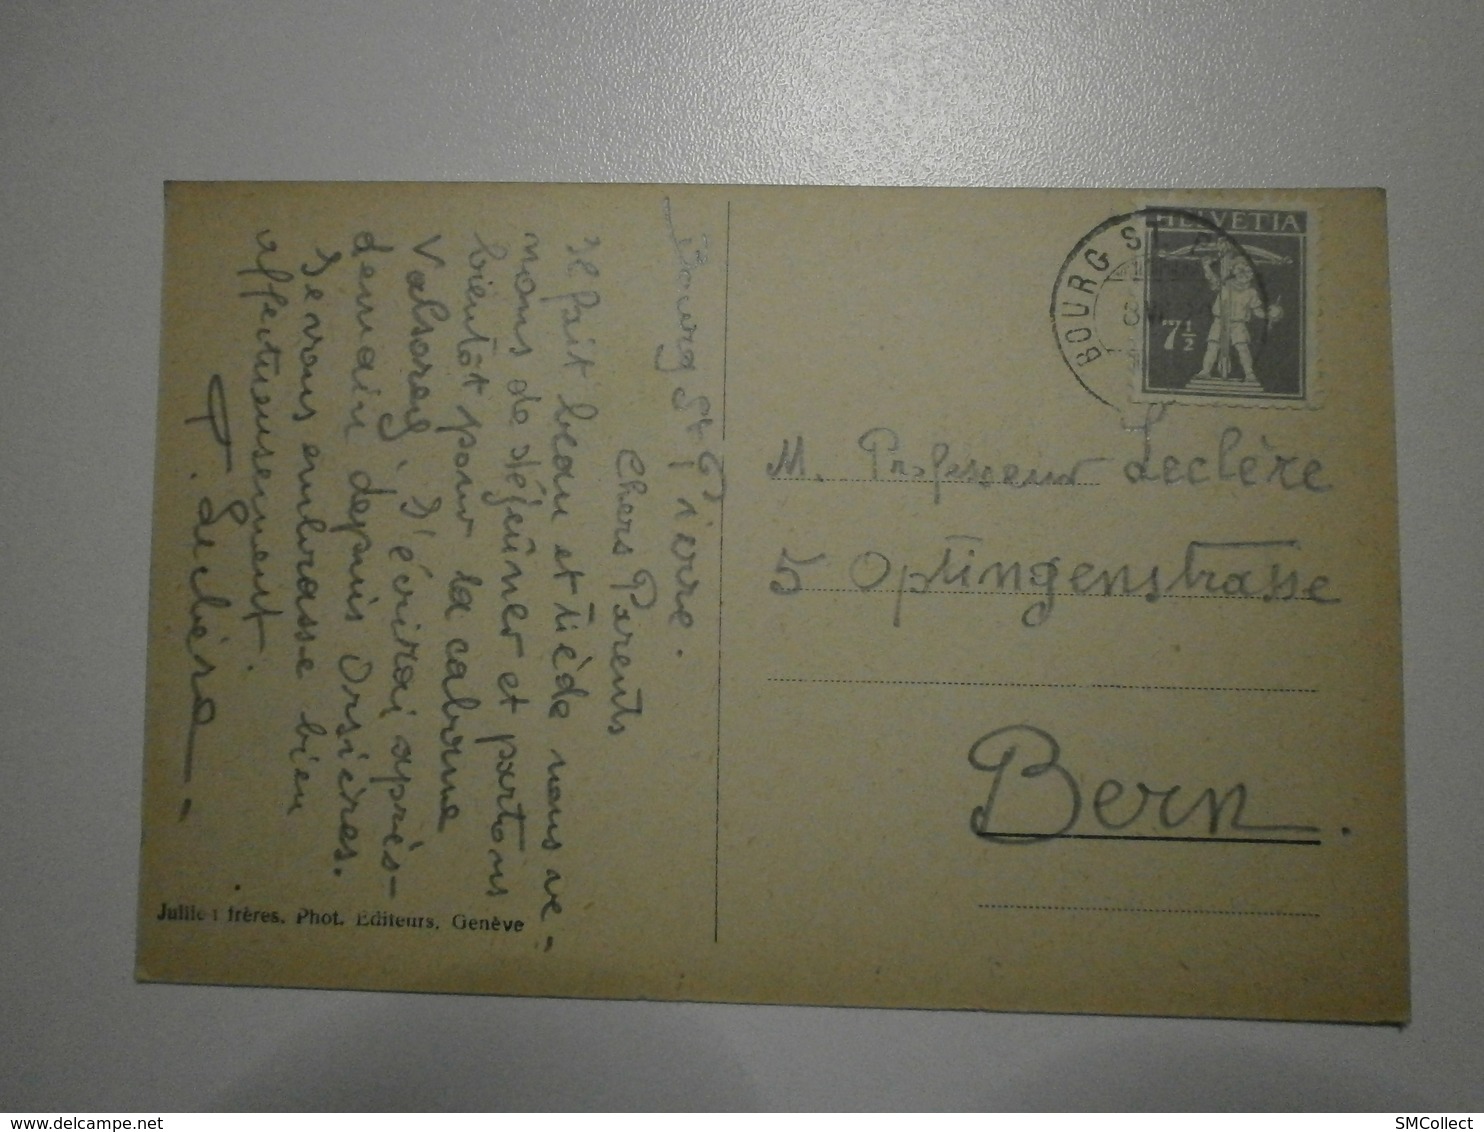 Bourg St Pierre.
Chers Parents
Il fait beau et tiède nous ve-
nons de déjeûner et partons
bientôt pour la cabane
Valsorey. J'écrirai après-
demain depuis Orsières.
Je vous embrasse bien
affectueusement.
F. Leclère
Jullien frères, Phot. Editeurs, Genève
BOURG ST. P
HELVETIA
7½
M. Professeur Leclère
5 Optingenstrasse
Bern.
SMCollect